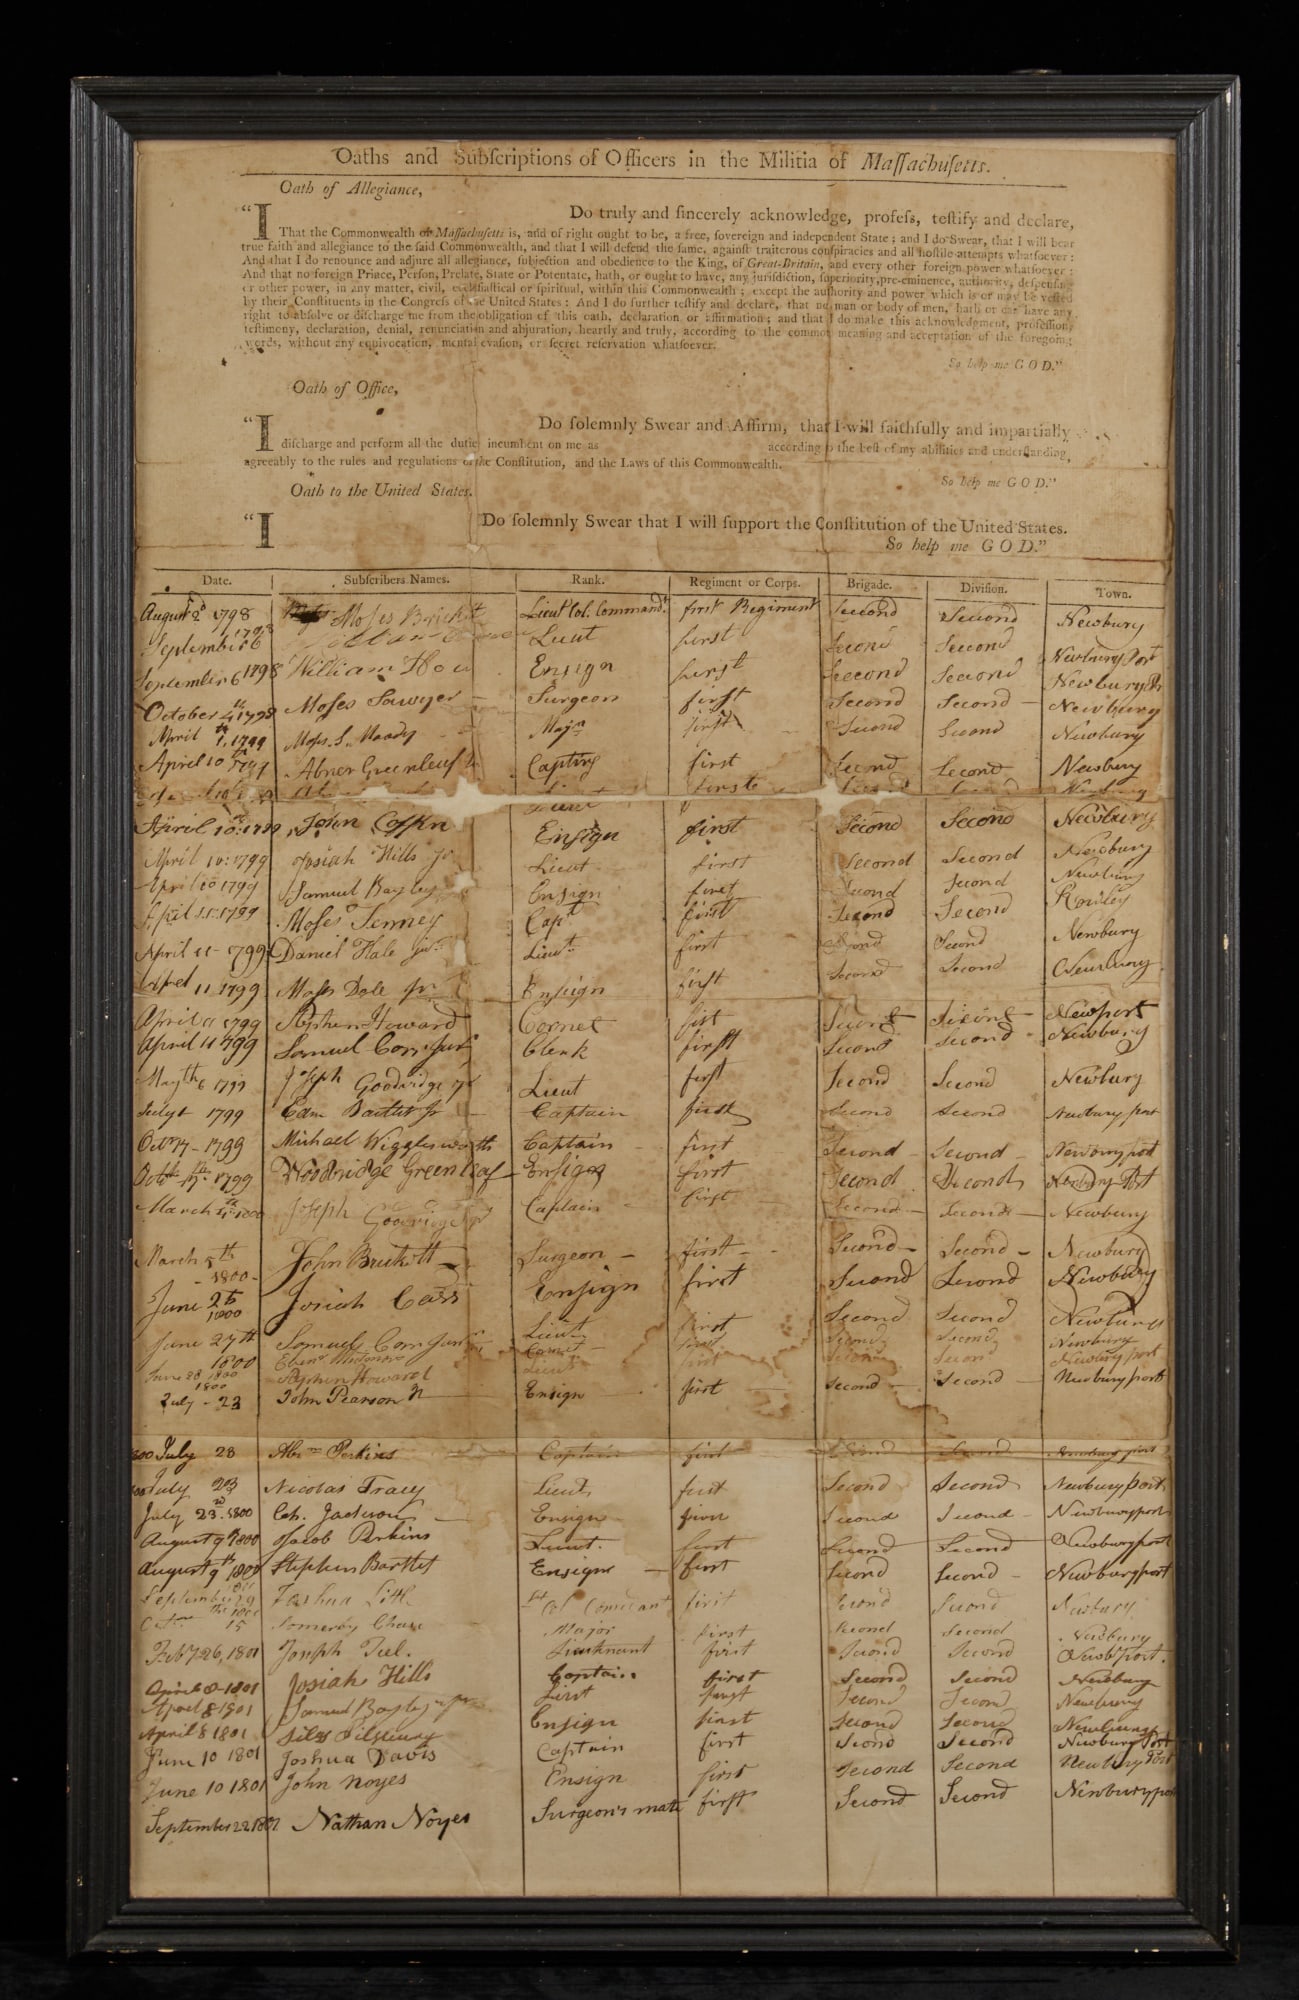 Oaths and Subſcriptions of Officers in the Militia of Maſſachuſetts.
Oath of Allegiance,
"I Do truly and ſincerely acknowledge, profeſs, teſtify and declare,
That the Commonwealth of Maſſachuſetts is, and of right ought to be, a free, ſovereign and independent State; and I do Swear, that I will bear
true faith and allegiance to the ſaid Commonwealth, and that I will defend the ſame, againſt traiterous conſpiracies and all hoſtile attempts whatſoever:
And that I do renounce and adjure all allegiance, ſubjection and obedience to the King, of Great-Britain, and every other foreign power whatſoever:
And that no foreign Prince, Perſon, Prelate, State or Potentate, hath, or ought to have, any juriſdiction, ſuperiority, pre-eminence, authority, diſpenſing
or other power, in any matter, civil, eccleſiaſtical or ſpiritual, within this Commonwealth; except the authority and power which is or may be veſted
by their Conſtituents in the Congreſs of the United States: And I do further teſtify and declare, that no man or body of men, hath or can have any
right to abſolve or diſcharge me from the obligation of this oath, declaration or affirmation; and that I do make this acknowledgment, profeſſion,
teſtimony, declaration, denial, renunciation and abjuration, heartly and truly, according to the common meaning and acceptation of the foregoing
words, without any equivocation, mental evaſion, or ſecret reſervation whatſoever.
So help me GOD."
Oath of Office,
"I Do ſolemnly Swear and Affirm, that I will faithfully and impartially
diſcharge and perform all the duties incumbent on me as according to the beſt of my abilities and underſtanding,
agreeably to the rules and regulations of the Conſtitution, and the Laws of this Commonwealth.
So help me GOD."
Oath to the United States.
"I Do ſolemnly Swear that I will ſupport the Conſtitution of the United States.
So help me GOD."
Date. Subſcribers Names. Rank. Regiment or Corps. Brigade. Diviſion. Town.
August 2d 1798 Moſes Brickett Lieut Col. Commandt first Regiment Second Second Newbury
September 6 1798 Lieut first Second Second Newbury Port
September 6 1798 William How Ensign first Second Second Newbury Pt
October 4th 1798 Moſes Sawyer Surgeon first Second Second Newbury
April 1, 1799 Moſs. S. Moody Majr first Second Second Newbury
April 10th 1799 Abner Greenleaf Captng first Second Second Newbury
Lieut firste Newbury
April 10th 1799 John Coffin Ensign first Second Second Newbury
April 10: 1799 Josiah Hills Jr Lieut first Second Second Newbury
April 10 1799 Samuel Bayley Ensign first Second Second Newbury
April 11: 1799 Moſes Tenney Capt first Second Second Rowley
April 11- 1799 Daniel Hale Junr Lieut first Second Second Newbury
April 11 1799 Moſes Dole Jnr Ensign first Second Second Newbury
April 11 1799 Stephen Howard Cornet first Second Second Newport
April 11 1799 Samuel Corn Junr Clerk first Second Second Newbury
May th 6 1799 Joseph Goodridge Jr Lieut first Second Second Newbury
July 1 1799 Edm Bartlet Jr Captain first Second Second Newbury port
Octr 17 - 1799 Michael Wigglesworth Captain first Second Second Newbury port
Octr 17th 1799 Woodbridge Greenleaf Ensign first Second Second Newbury Port
March 4th 1800 Joseph Goodridge Jr Captain first Second Second Newbury
March 5th 1800 John Brickett Surgeon first Second Second Newbury
June 25 1800 Josiah Carr Ensign first Second Second Newbury
June 27th 1800 Samuel Corn Junr Lieut first Second Second Newbury
Eben Cornet first Second Second Newbury
June 28 1800 Stephen Howard Lieut first Second Second Newbury port
1800 July - 23 John Pearson Jr Ensign first Second Second Newbury port
1800 July 23 Abm Perkins Captain first Second Second Newbury port
1800 July 23 Nicolas Tracy Lieut first Second Second Newbury port
July 23d 1800 Ch. Jackson Ensign first Second Second Newburyport
August 9th 1800 Jacob Perkins Lieut. first Second Second Newburyport
August 9th 1800 Stephen Bartlet Ensign first Second Second Newburyport
September 29 Joshua Little Lt Col Comdant first Second Second Newbury
Octr 15 Somerby Chase Major first Second Second Newbury
Feby 26, 1801 Joseph Teel. Lieutenant first Second Second Newbyport.
April 8 - 1801 Josiah Hills Captain first Second Second Newbury
April 8 1801 Samuel Bayley Jnr Lieut first Second Second Newbury
April 8 1801 Silas Pilsbury Ensign first Second Second Newbury
June 10 1801 Joshua Davis Captain first Second Second Newbury Port
June 10 1801 John Noyes Ensign first Second Second Newbury Port
September 22 1801 Nathan Noyes Surgeon's mate first Second Second Newburyport